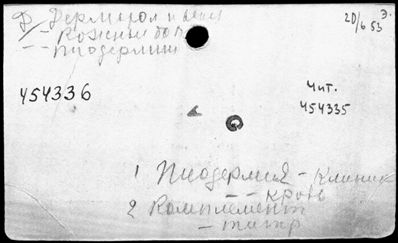 20/6 53 Э.
Кожные бол
-- Пиодермии
454336
Чит.
454335
1 Пиодермия - Клиник
-- кровь
2 Комплемент
- титр